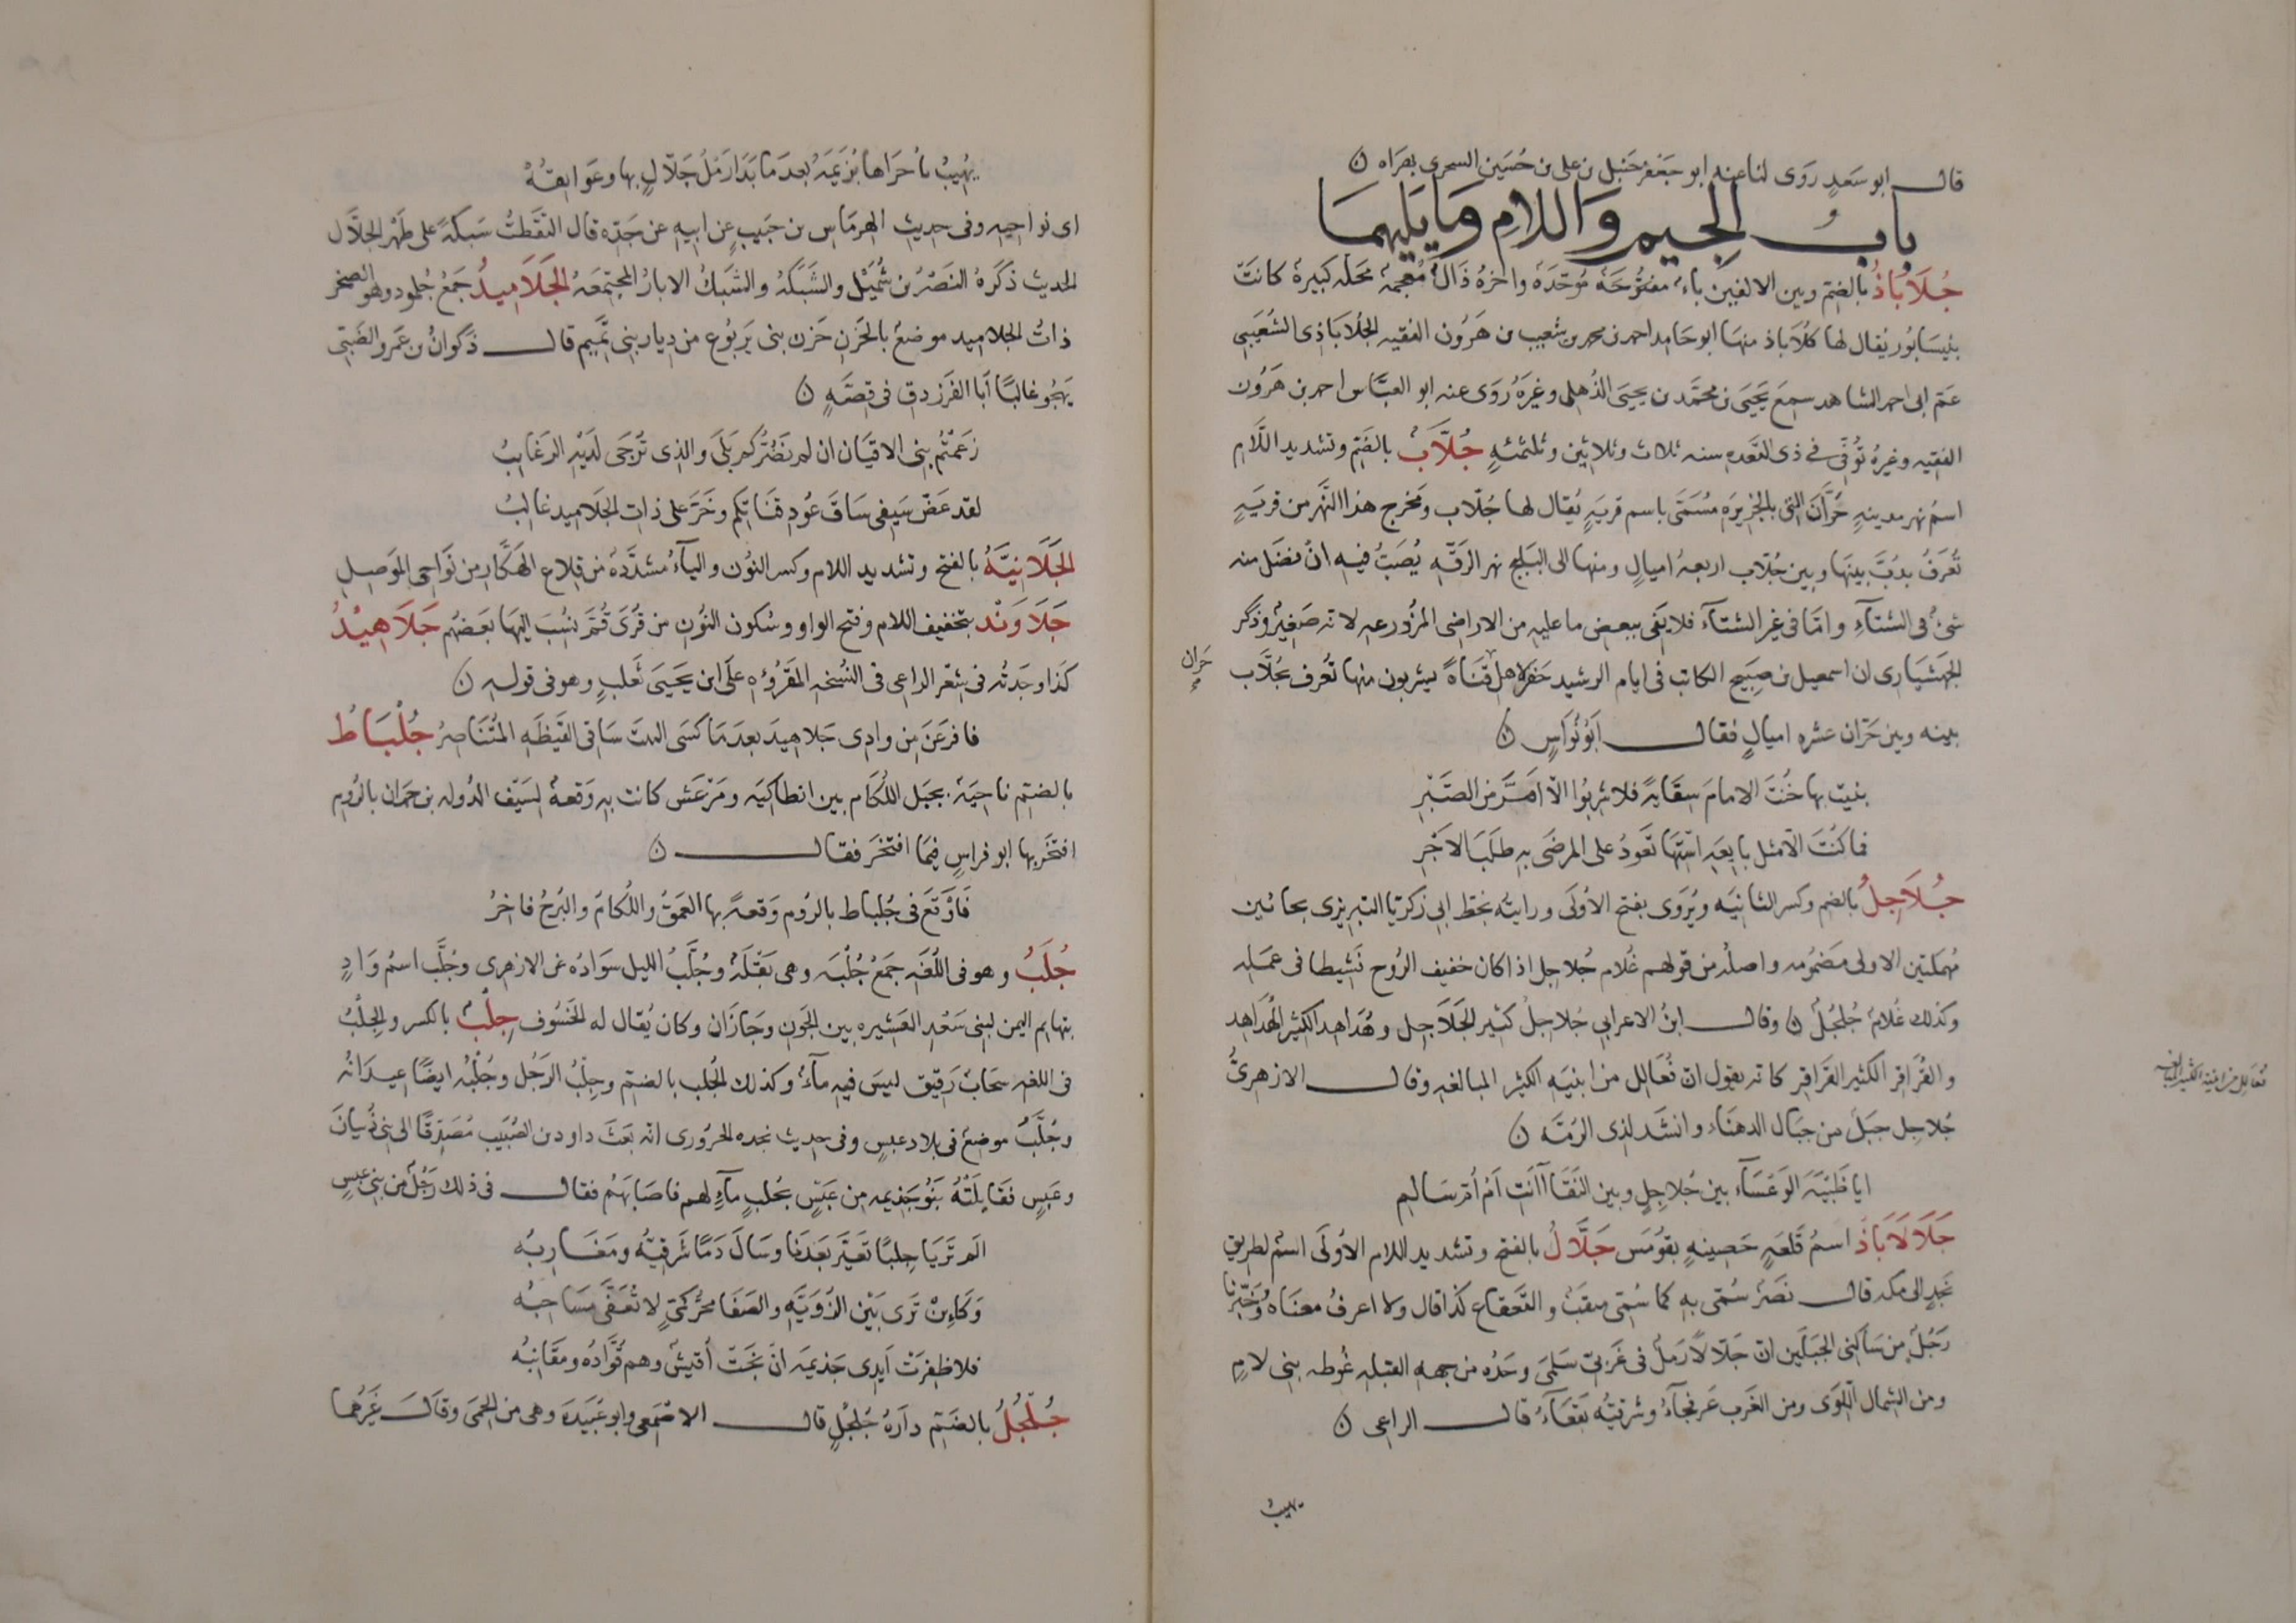 قال ابو سعد روى لنا عنه ابو جعفر حنبل بن على بن حسين السجزى بهراه ن
باب الجيم واللام وما يليهما
جُلَاباذُ بالضم وبين الالفين باء مفتوحة موحّدة واخره ذال معجمة محله كبيرة كانت
بنيسابور يقال لها كلاباذ منها ابو حامد احمد بن محمد بن شعيب بن هرون الفقيه الجلاباذى الشعيبى
عم ابى احمد الشاهد سمع يحيى بن محمد بن يحيى الذهلى وغيره روى عنه ابو العباس احمد بن هرون
الفقيه وغيره توفى فى ذى القعده سنه ثلاث وثلاثين وثلثمئة جُلَّابٌ بالضم وتشديد اللام
اسم نهر مدينة حرّان التى بالجزيره مسمّى باسم قرية يقال لها جلّاب ومخرج هذا النهر من قرية
تعرف بدبّ بينها وبين جلاب اربعة اميال ومنها الى البليخ نهر الرقه يُصبّ فيه ان فضل منه
شئ فى الشتاء وامّا فى غير الشتاء فلا يفى ببعض ما عليه من الاراضى المزروعه لانه صغير وذكر
الجهشيارى ان اسمعيل بن صبيح الكاتب فى ايام الرشيد حفر لاهل قناة يشربون منها تعرف بجلّاب
حران
بينه وبين حرّان عشره اميال فقال ابو نواس ن
بنيت بها خنت الامام سقاية فلا شربوا الّا امرّ من الصبر
فما كنت الّا مثل بايعة استها تعود على المرضى به طلب الاجر
جُلَاجِلُ بالضم وكسر الثانيه ويُروى بفتح الاولى ورايته بخط ابى زكريا التبريزى بحائين
مهملتين الاولى مضمومه واصله من قولهم غلام جلاجل اذا كان خفيف الروح نشيطا فى عمله
وكذلك غلام جلجل ن وقال ابن الاعرابى جلاجل كثير الجلاجل وهُداهد الكثير الهداهد
والقُراقر الكثير القراقر كانه يقول ان فُعالل من ابنيه الكثير المبالغه وقال الازهرىّ
جلاجل جبل من جبال الدهناء وانشد لذى الرمّه ن
ايا ظبية الوعساء بين جلاجل وبين النقا آانت ام ام سالم
جَلَالَابَاذ اسم قلعة حصينة بقومس جَلَّالُ بالفتح وتشديد اللام الاولى اسم لطريق
نجد الى مكه قال نصر سُمّى به كما سُمّى مثقب والقعقاع كذا قال ولا اعرف معناه وخبّرنا
رجل من ساكنى الجبلين ان جلّالا رمل فى غربىّ سلمى وحدّه من جهه القبله غوطه بنى لام
ومن الشمال اللوى ومن الغرب عرفجاء وشرقيّه بقعاء قال الراعى ن
يهيب
يُهيبُ باُخراها بُزَيمَة بعدما بدا رمل جلّال بها وعوابقه
اى نواحيه وفى حديث الهرماس بن حبيب عن ابيه عن جده قال التقطت شبكة على ظهر الجلّال
الحديث ذكره النضر بن شميل والشبكة والشبك الابار المجتمعة الجَلَامِيدُ جمع جُلمود وهو الصخر
ذات الجلاميد موضع بالحزن حزن بنى يربوع من ديار بنى تميم قال ذكوان بن عمرو الضبى
يهجو غالبًا ابا الفرزدق فى قصّة ن
زعمتم بنى الاقيان ان لم نضركم بلى والذى ترجى لديه الرغايب
لقد عضّ سيفى ساق عود قناتكم وخرّ على ذات الجلاميد غالب
الجَلَّانِيَّةُ بالفتح وتشديد اللام وكسر النون والياء مشدّدة من قلاع الهكّار من نواحى الموصل
جَلَاوَنْد بتخفيف اللام وفتح الواو وسكون النون من قرى قُم نُسب اليها بعضهم جَلَاهِيْدُ
كذا وجدته فى شعر الراعى فى النسخه المقروءه على ابن يحيى ثعلب وهو فى قوله ن
فافرعن من وادى جلاهيد بعدما كسى البيت سافى القيظة المتناصر جُلْبَاطُ
بالضم ناحية بجبل اللكام بين انطاكيه ومرعش كانت به وقعة لسيف الدوله بن حمدان بالروم
افتخر بها ابو فراس فيما افتخر فقال ن
فاوقع فى جلباط بالروم وقعة بها العمق واللكام والبرج فاخر
جُلَبُ وهو فى اللغه جمع جُلبه وهى بقلة وجُلَّبُ الليل سواده عن الازهرى وجُلَّب اسم وادٍ
بتهايم اليمن لبنى سعد العشيره بين الجون وجازان وكان يقال له الخسوف جِلْبٌ بالكسر والجلب
فى اللغه سحاب رقيق ليس فيه ماء وكذلك الجلب بالضم وجلب الرجل وجلبه ايضًا عيدانه
وجلّب موضع فى بلاد عبس وفى حديث نجده الحرورى انه بعث داود بن الضبيب مصدقًا الى بنى ذبيان
وعبس فقاتلته بنو جذيمه من عبس بجلب ماءٍ لهم فاصابهم فقال فى ذلك رجل من بنى عبس
الم تريا جلبًا تغيّر بعدنا وسال دمًا شرقيّه ومغاربه
وكاين ترى بين الزوية والصفا مجر كمىّ لا تُعفّى مساحبه
فلا ظفرت ايدى جذيمه ان نجت اقيش وهم قوّاده ومقانبه
جُلْجُلُ بالضم دارة جلجل قال الاصمعى وابو عبيدة وهى من الحمى وقال غيرهما